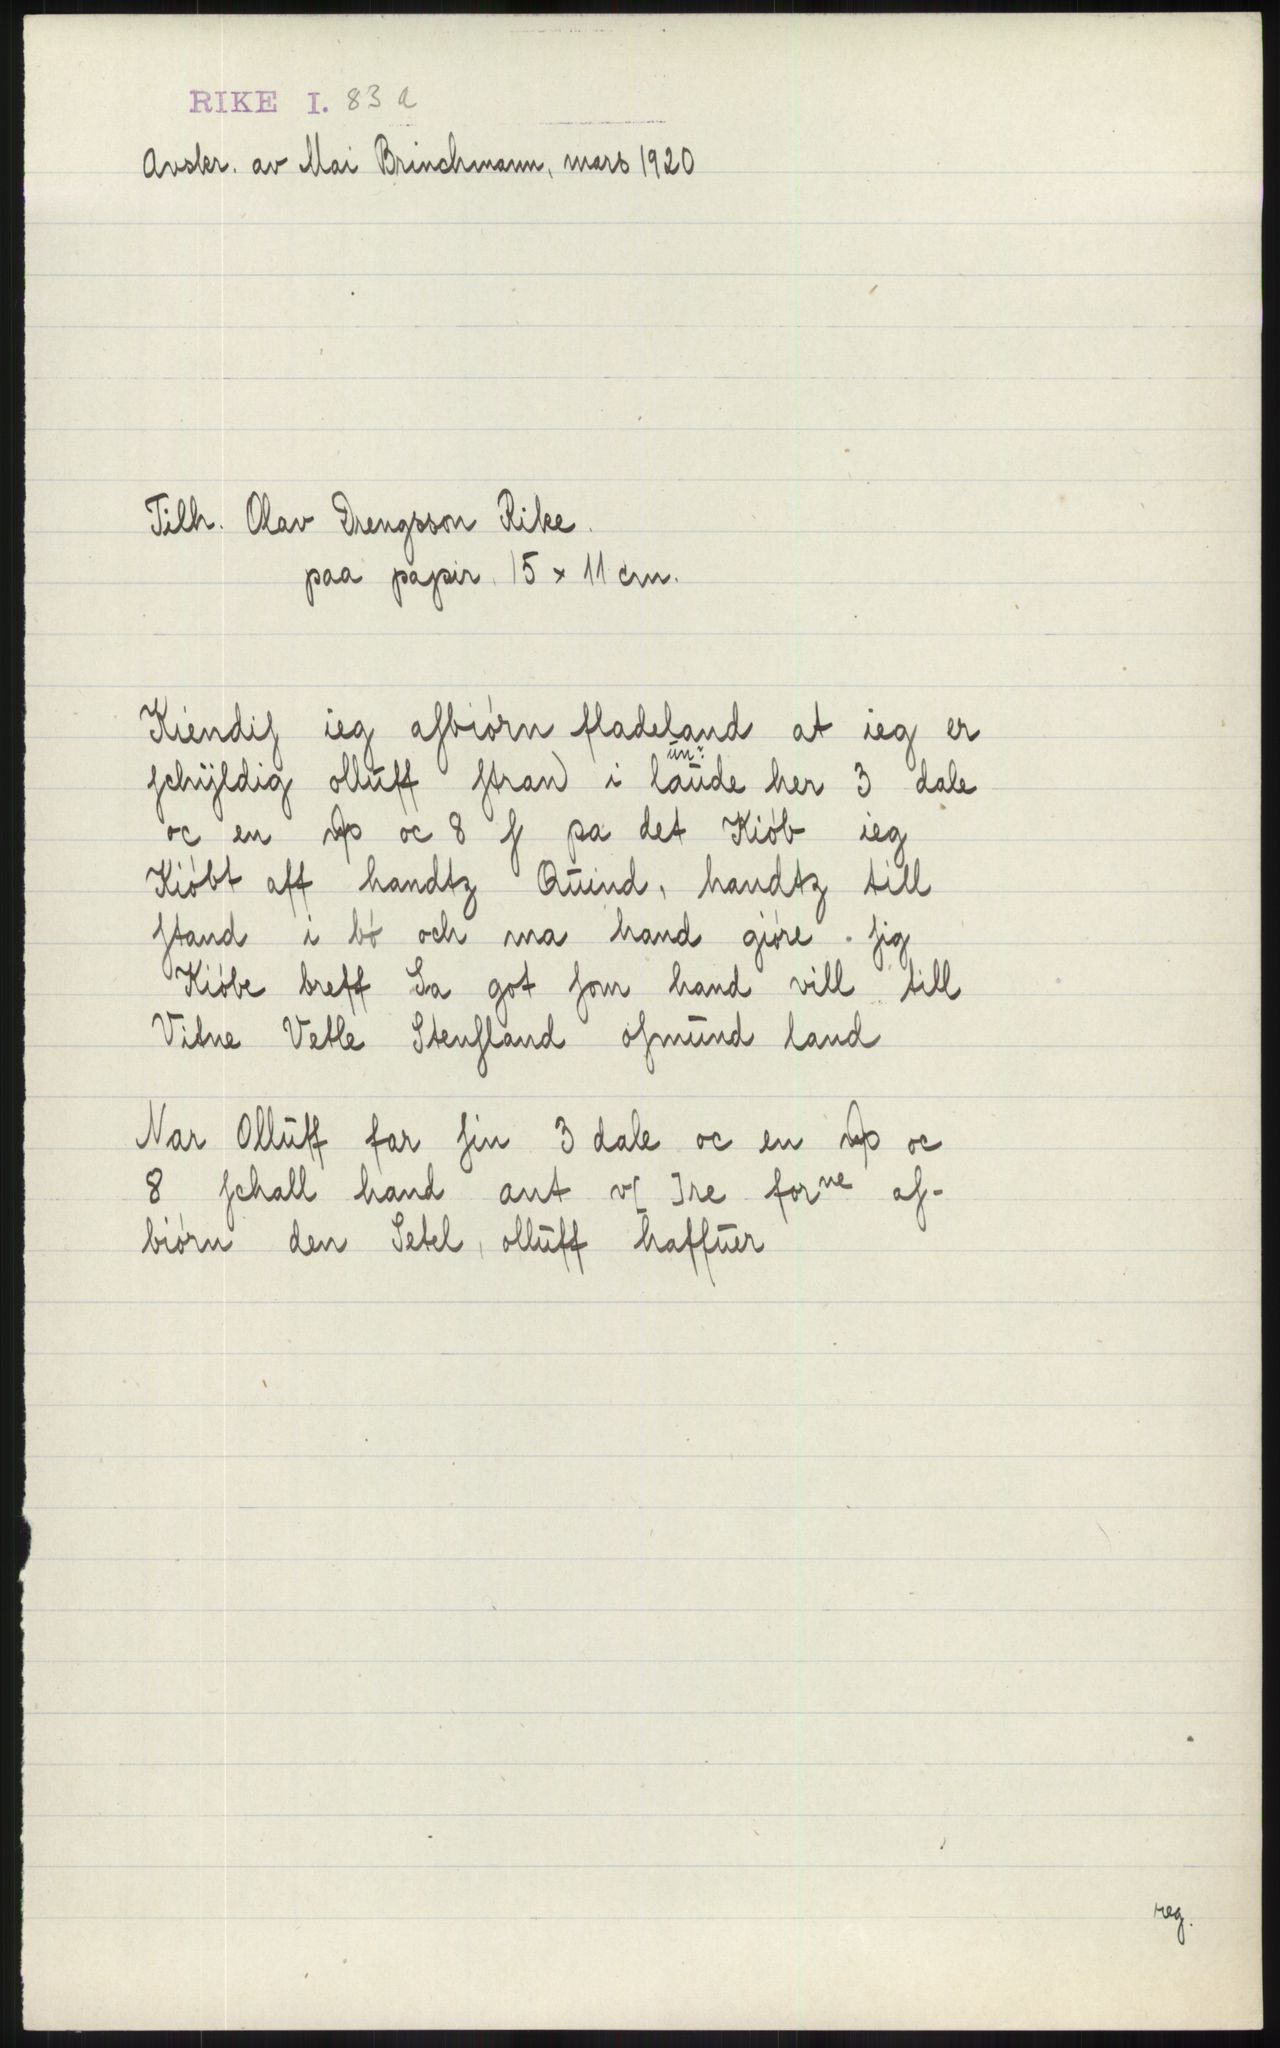 RIKE I. 83 a
Avskr. av Mai Brinchmann, mars 1920
Tilh. Olav Drengsson Rike.
paa papir 15 x 11 cm.
Kiendiſ ieg aſbiórn fladeland at ieg er
ſchÿldig ollūff ſtrand i laūde her 3 dale
ūn:
oc en oc 8 ſ pa det Kiób ieg
Kióbt aff handtz Qūind, handtz till
ſtand i bó och ma hand gióre ſig
Kióbe breff Sa got ſom hand vill till
Vitne Vetle Stenſland oſmūnd land
Nar Ollūff far ſin 3 dale oc en oc
8 ſchall hand ant v[ ]re forne aſ-
biórn den Setel, ollūff haffūer
reg.